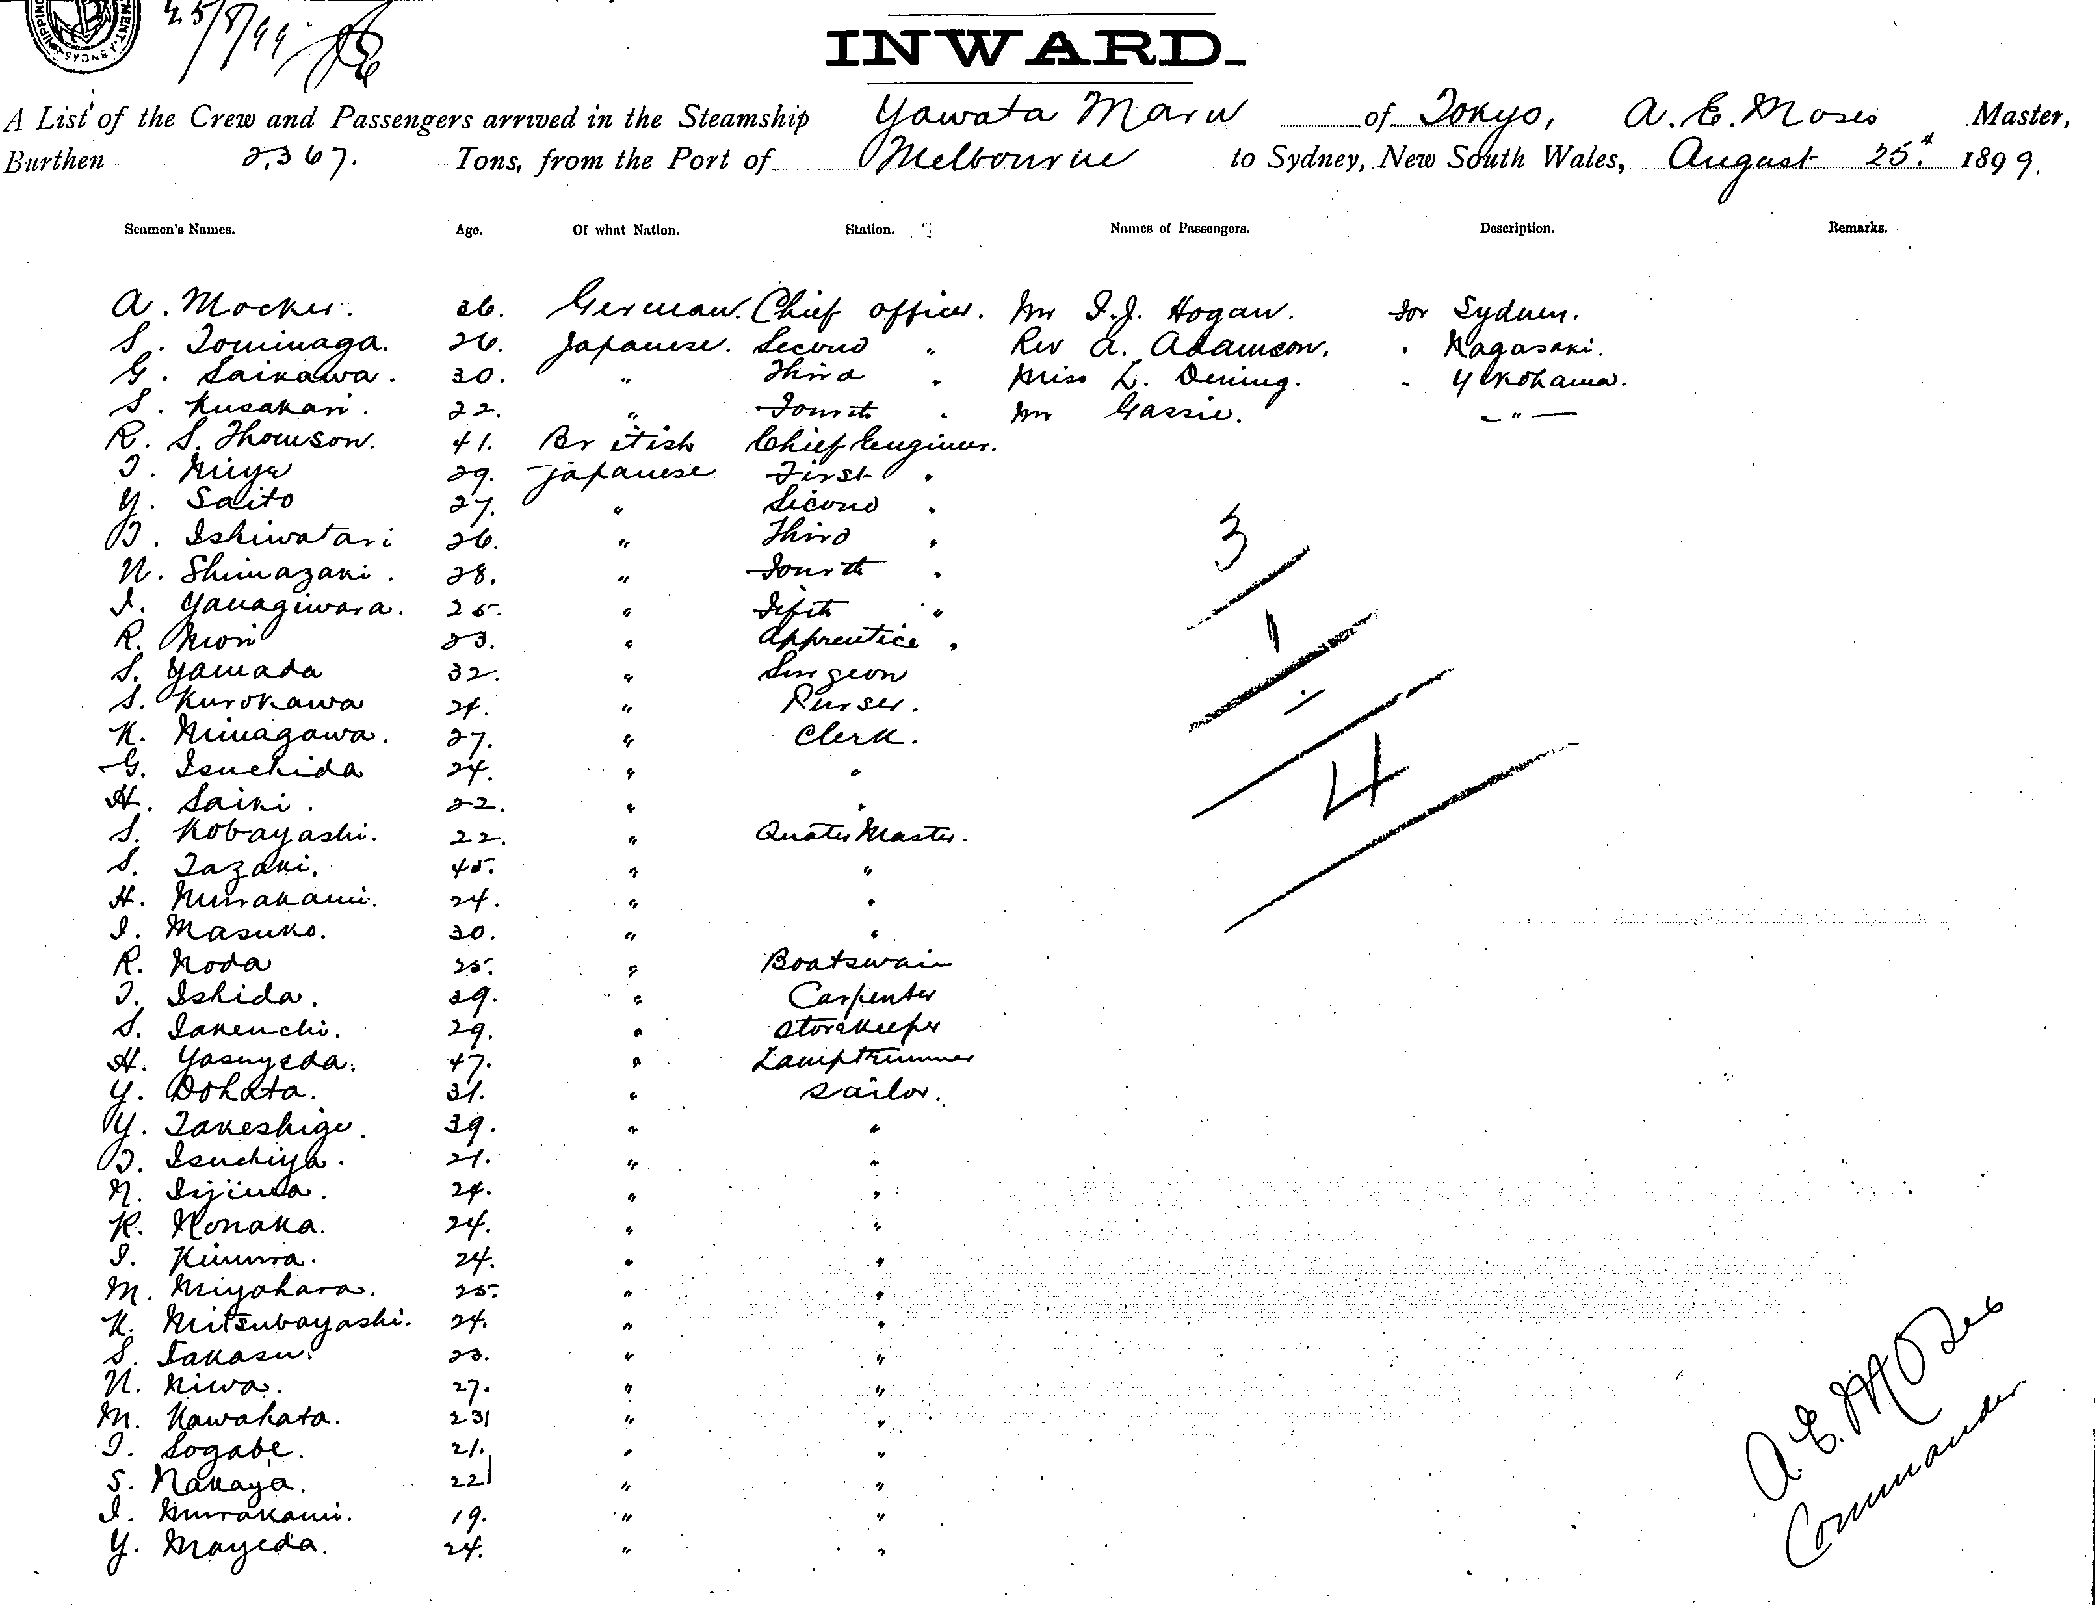 25/8/99
INWARD.
A List of the Crew and Passengers arrived in the Steamship Yawata Maru of Tokyo, A. E. Moses Master,
Burthen 2,367. Tons, from the Port of Melbourne to Sydney, New South Wales, August 25th 1899.
Seamen's Names. Age. Of what Nation. Station. Names of Passengers. Description. Remarks.
A. Mocker. 36. German. Chief officer. Mr I. J. Hogan. for Sydney.
S. Tominaga. 26. Japanese. Second " Rev A. Adamson. " Nagasaki.
G. Saikawa. 30. " Third " Miss L. Dening. " Yokohama.
S. Kusakari. 22. " Fourth " Mr Gassie. — " —
R. S. Thomson. 41. British Chief Engineer.
T. Miya 29. Japanese First "
Y. Saito 27. " Second "
T. Ishiwatari 26. " Third "
N. Shimazaki. 28. " Fourth "
I. Yanagiwara. 25. " Fifth "
R. Mori 23. " Apprentice "
S. Yamada 32. " Surgeon
S. Kurokawa 24. " Purser.
K. Minagawa. 27. " Clerk.
G. Tsuchida 24. " "
H. Saiki. 22. " "
S. Kobayashi. 22. " Quater Master.
S. Tazaki. 45. " "
H. Murakami. 24. " "
I. Masuko. 30. " "
R. Noda 25. " Boatswain
T. Ishida. 29. " Carpenter
S. Takeuchi. 29. " Storekeeper
H. Yasuyeda. 47. " Lamptrimmer
Y. Dohata. 31. " Sailor.
Y. Takeshige. 39. " "
T. Tsuchiya. 21. " "
N. Iijima. 24. " "
K. Nonaka. 24. " "
I. Kimura. 24. " "
M. Miyahara. 25. " "
K. Mitsubayashi. 24. " "
S. Takasu. 23. " "
N. Niwa. 27. " "
M. Kawahata. 23 " "
T. Sogabe. 21. " "
S. Nakaya. 22 " "
I. Murakami. 19. " "
Y. Mayeda. 24. " "
3
1
4
A. E. Moses
Commander